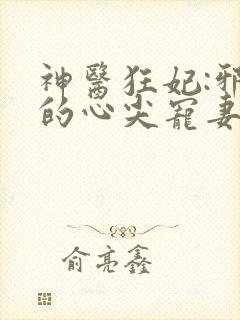 神醫狂妃:邪
的心尖寵妻
俞亮鑫